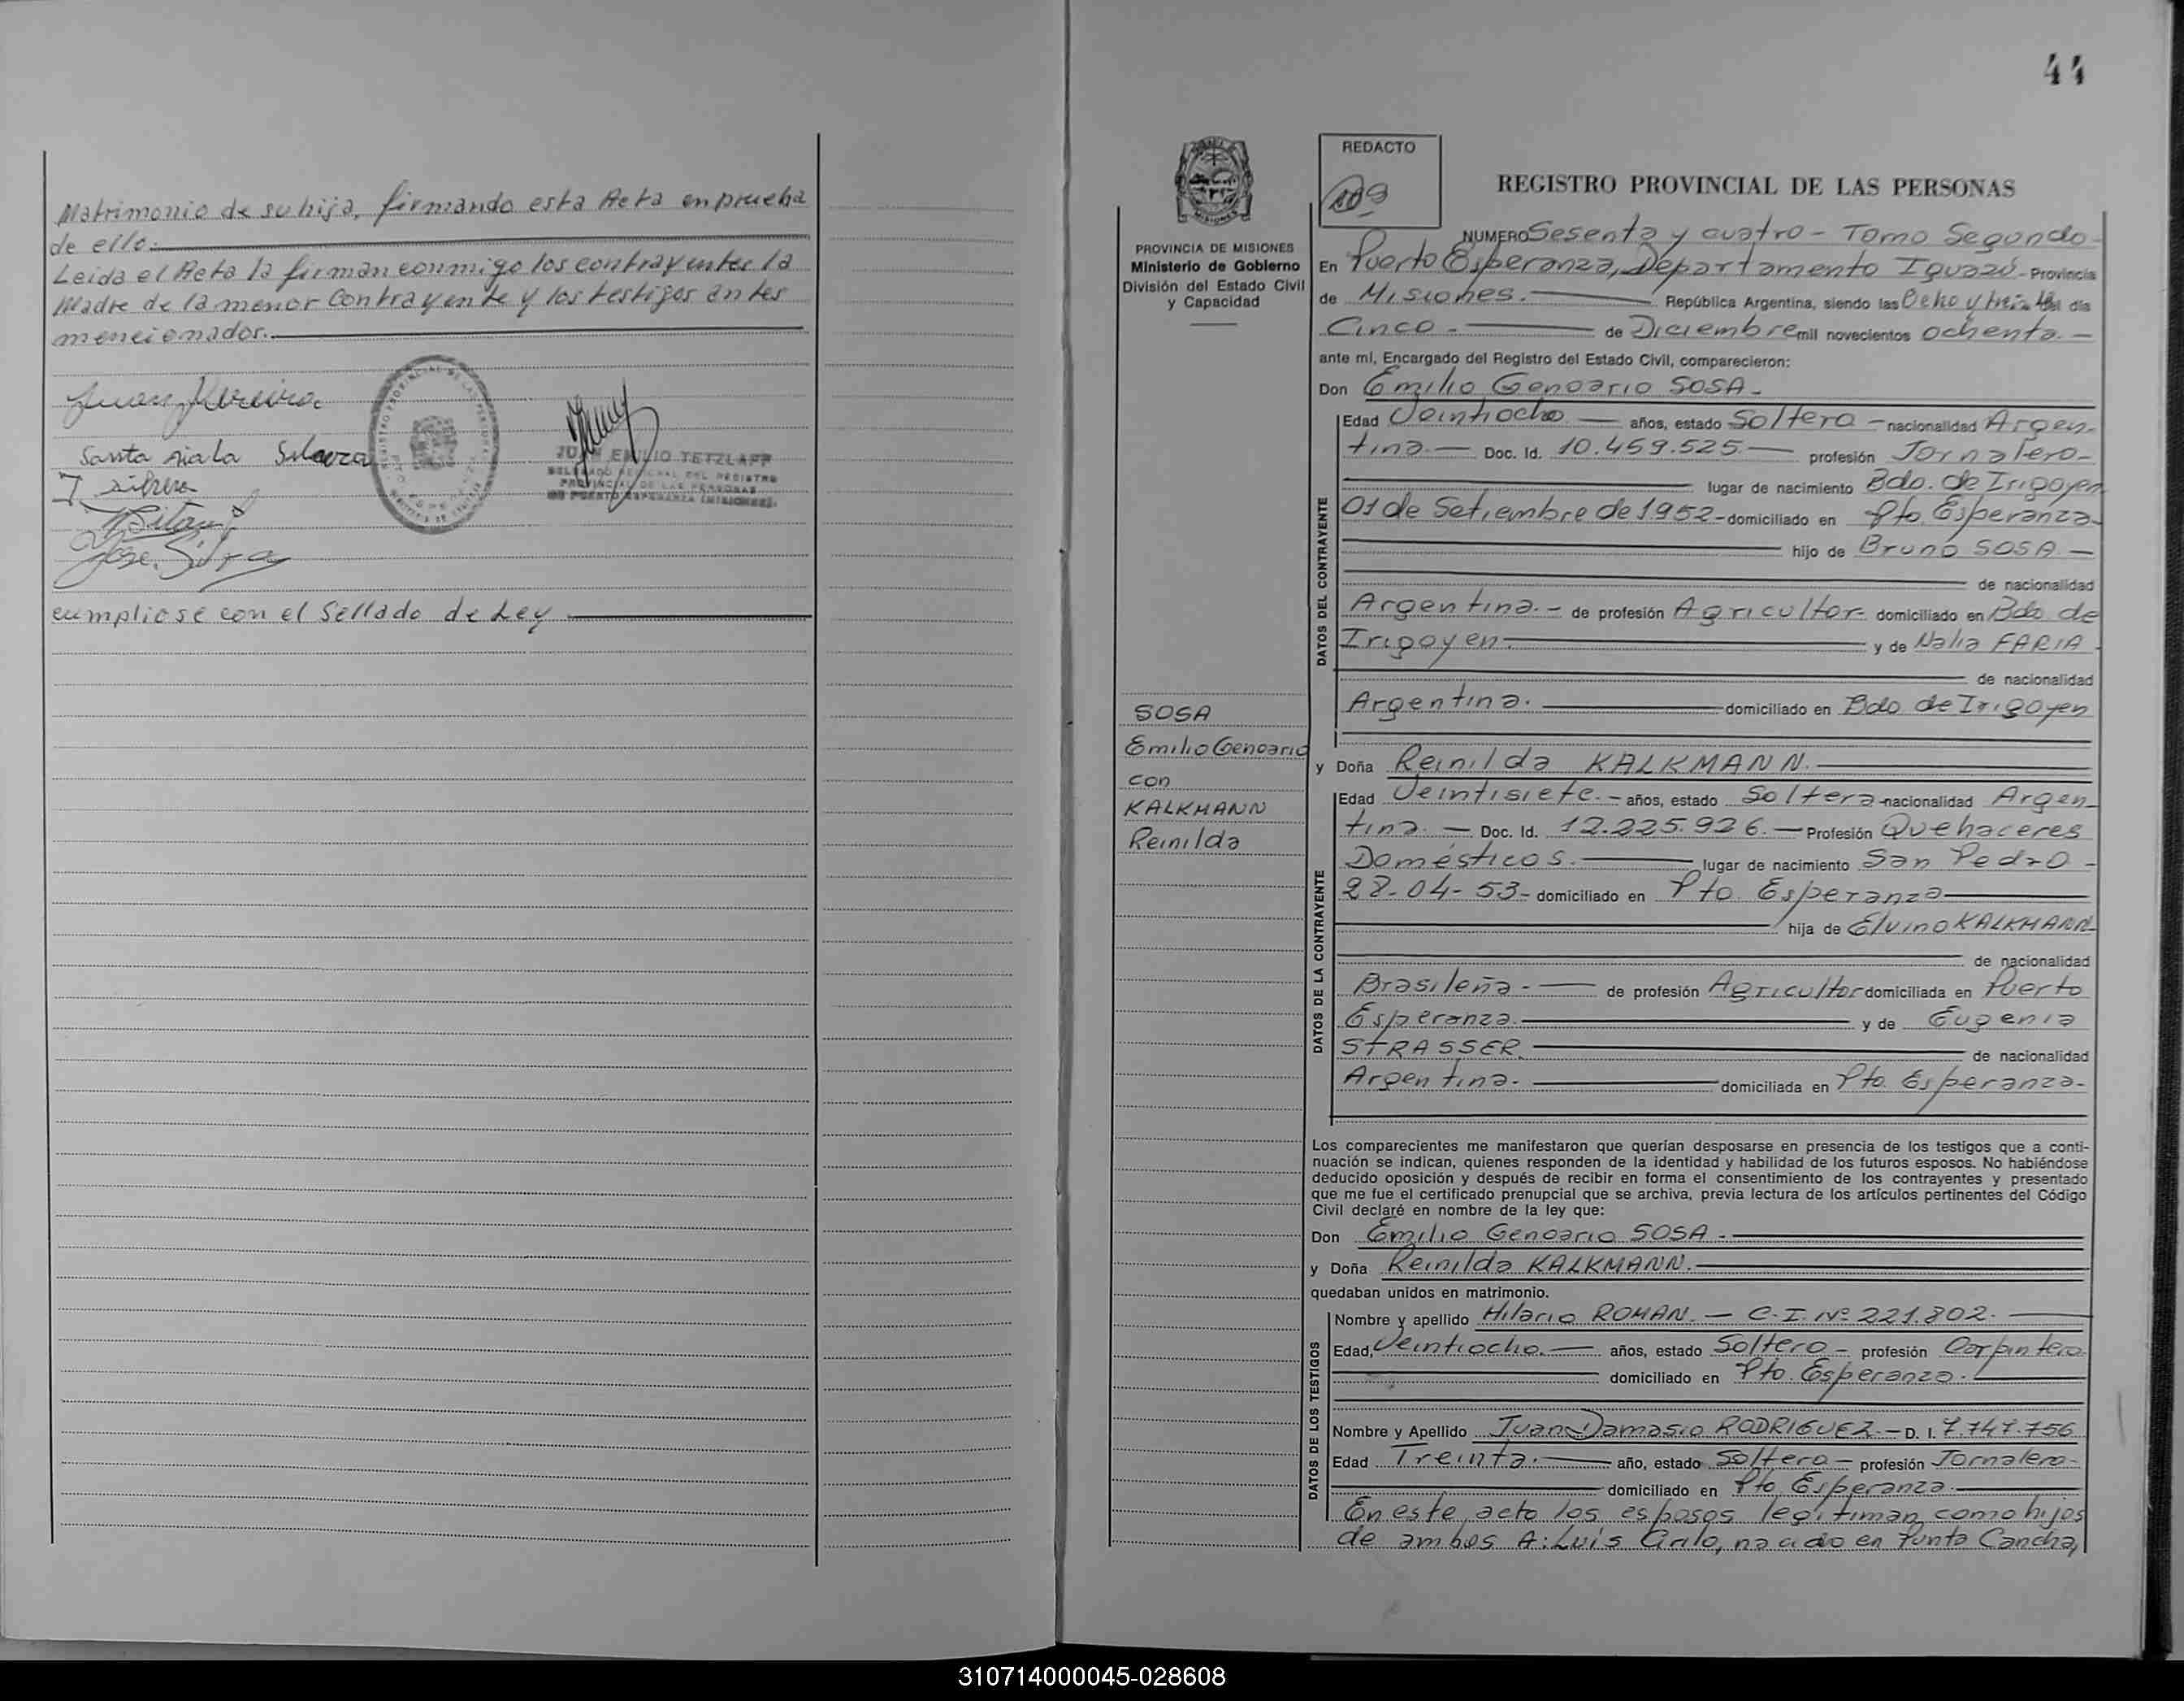 Matrimonio de su hija, firmando esta Acta en prueba
de ello.
Leida el Acta la firman conmigo los contrayentes la
Madre de la menor Contrayente y los testigos antes
mencionados.
Juan Pereira
Santa
José Silva
JUAN EMILIO TETZLAFF
DELEGADO REGIONAL DEL REGISTRO
PROVINCIAL DE LAS PERSONAS
DE PUERTO ESPERANZA (MISIONES)
cumpliose con el Sellado de Ley
44
PROVINCIA DE MISIONES
Ministerio de Gobierno
División del Estado Civil
y Capacidad
SOSA
Emilio Genoario
con
KALKMANN
Reinilda
REDACTO
REGISTRO PROVINCIAL DE LAS PERSONAS
NUMERO Sesenta y cuatro - Tomo Segundo-
En Puerto Esperanza, Departamento Iguazú - Provincia
de Misiones. República Argentina, siendo las Ocho y treinta del día
Cinco - de Diciembre mil novecientos ochenta. -
ante mí, Encargado del Registro del Estado Civil, comparecieron:
Don Emilio Genoario SOSA -
DATOS DEL CONTRAYENTE
Edad Veintiocho - años, estado Soltero - nacionalidad Argen-
tina. - Doc. Id. 10.459.525. - profesión Jornalero -
lugar de nacimiento Bdo. de Irigoyen
01 de Setiembre de 1952 - domiciliado en Pto. Esperanza -
hijo de Bruno SOSA -
de nacionalidad
Argentina. - de profesión Agricultor - domiciliado en Bdo de
Irigoyen. y de Nalia FARIA -
de nacionalidad
Argentina. domiciliado en Bdo de Irigoyen
y Doña Reinilda KALKMANN.
DATOS DE LA CONTRAYENTE
Edad Veintisiete. - años, estado Soltera nacionalidad Argen-
tina. - Doc. Id. 12.225.926. - Profesión Quehaceres
Domésticos. lugar de nacimiento San Pedro -
28-04-53 - domiciliado en Pto. Esperanza
hija de Elvino KALKMANN
de nacionalidad
Brasileña - de profesión Agricultor domiciliada en Puerto
Esperanza. y de Eugenia
STRASSER. de nacionalidad
Argentina. domiciliada en Pto. Esperanza -
Los comparecientes me manifestaron que querían desposarse en presencia de los testigos que a conti-
nuación se indican, quienes responden de la identidad y habilidad de los futuros esposos. No habiéndose
deducido oposición y después de recibir en forma el consentimiento de los contrayentes y presentado
que me fue el certificado prenupcial que se archiva, previa lectura de los artículos pertinentes del Código
Civil declaré en nombre de la ley que:
Don Emilio Genoario SOSA -
y Doña Reinilda KALKMANN.
quedaban unidos en matrimonio.
DATOS DE LOS TESTIGOS
Nombre y apellido Hilario ROMAN. - C.I. Nº 221.802.
Edad, Veintiocho. - años, estado Soltero - profesión Carpintero
domiciliado en Pto. Esperanza.
Nombre y Apellido Juan Damasio RODRIGUEZ - D. I. 7.747.756
Edad Treinta. - año, estado Soltero - profesión Jornalero -
domiciliado en Pto. Esperanza.
En este acto los esposos legitiman como hijos
de ambos A: Luis Cirilo, nacido en Punta Cancha,
310714000045-028608